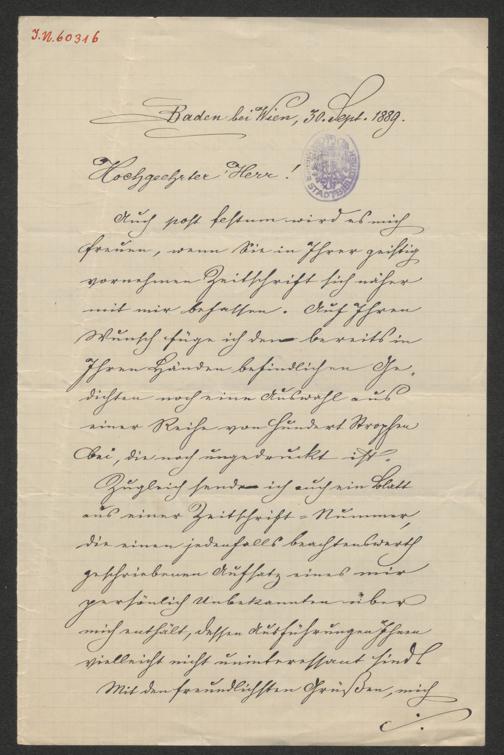 I.N. 60316
Baden bei Wien, 30. Sept. 1889.
Hochgeehrter Herr!
STADTBIBLIOTHEK
Auch post festum wird es mich
freuen, wenn Sie in Ihrer geistig
vornehmen Zeitschrift sich näher
mit mir befassen. Auf Ihren
Wunsch füge ich den bereits in
Ihren Händen befindlichen Ge-
dichten noch eine Auswahl aus
einer Reihe von hundert Strophen
bei, die noch ungedruckt ist.
Zugleich sende ich auch ein Blatt
aus einer Zeitschrift-Nummer,
die einen jedenfalls beachtenswerth
geschriebenen Aufsatz eines mir
persönlich Unbekannten über
mich enthält, dessen Ausführungen Ihnen
vielleicht nicht uninteressant sind.
Mit den freundlichsten Grüßen, mich